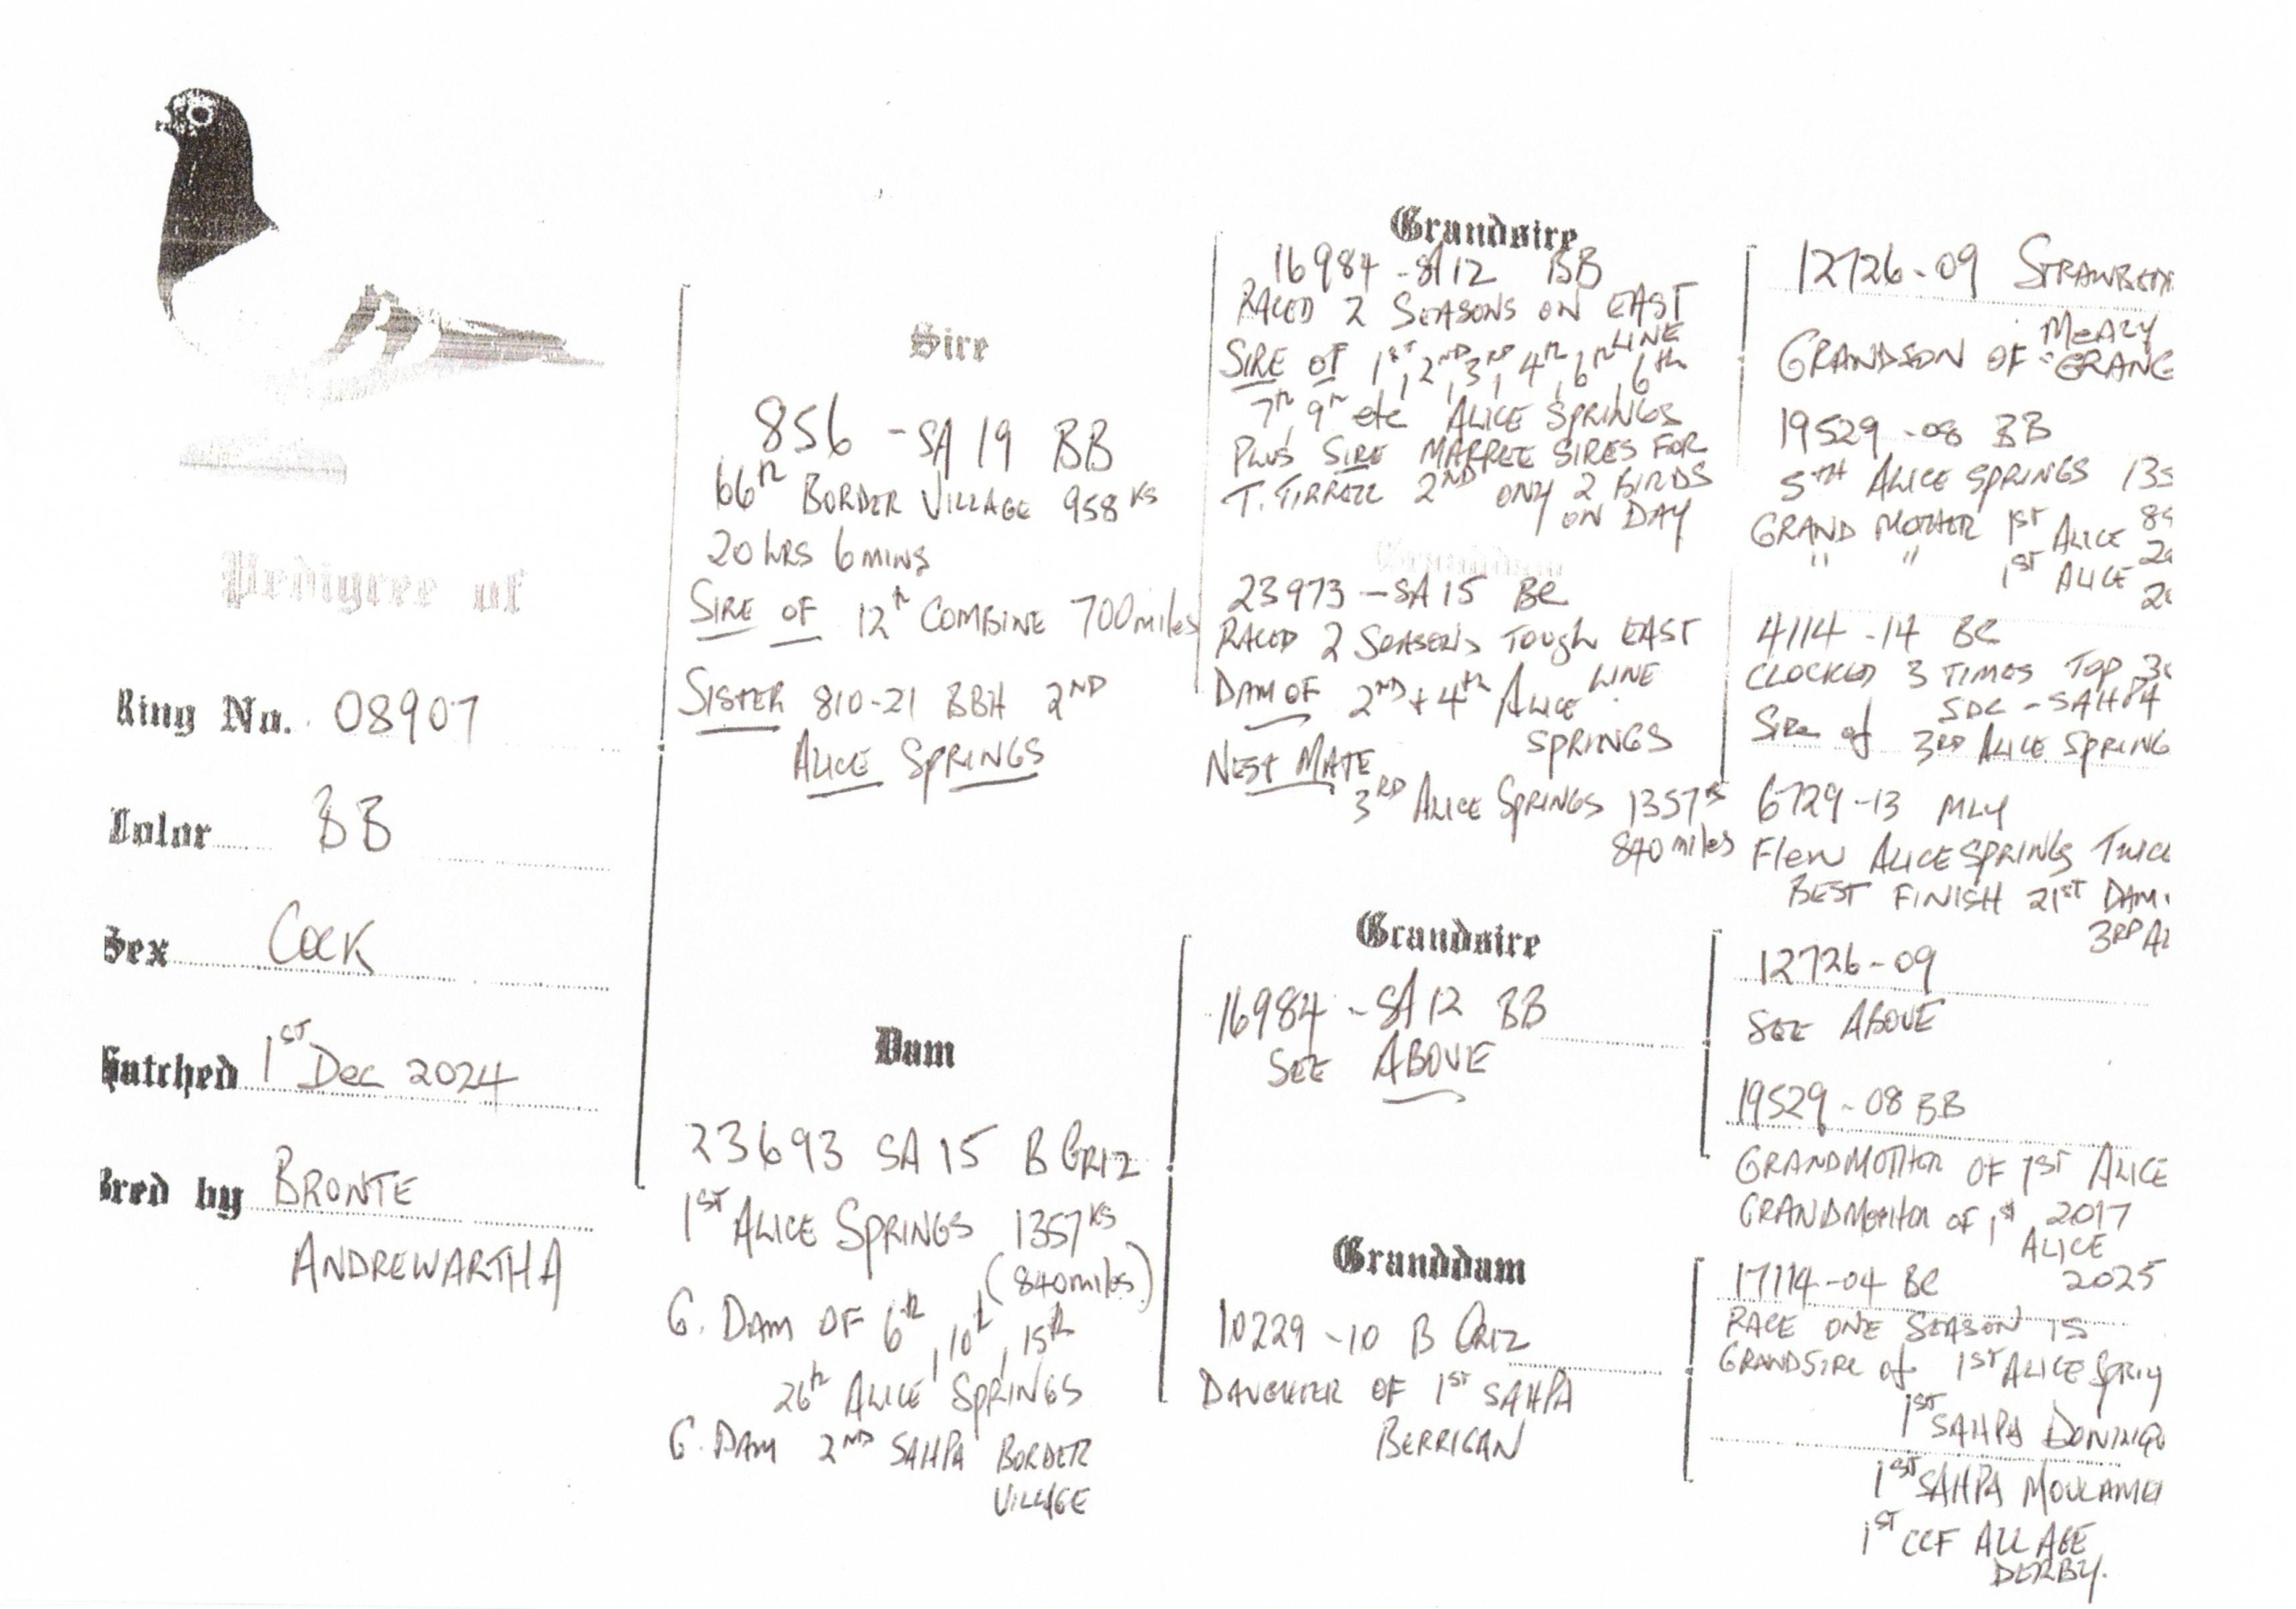 Pedigree of
Ring No. 08907
Color BB
Sex Cock
Hatched 1ST Dec 2024
Bred by BRONTE
ANDREWARTHA
Sire
856 - SA 19 BB
66th BORDER VILLAGE 958 KS
20 HRS 6 MINS
SIRE OF 12th COMBINE 700 miles
SISTER 810-21 BBH 2ND
ALICE SPRINGS
Dam
23693 SA 15 B GRIZ
1ST ALICE SPRINGS 1357 KS
(840 miles)
G. DAM OF 6th, 10th, 15th
26th ALICE SPRINGS
G. DAM 2ND SAHPA BORDER
VILLAGE
Grandsire
16984 - SA 12 BB
RACED 2 SEASONS ON EAST
LINE
SIRE OF 1ST, 2ND, 3RD, 4th, 6th, 6th
7th, 9th etc ALICE SPRINGS
PLUS SIRE MARREE SIRES FOR
T. TIRRELL 2ND ONLY 2 BIRDS
ON DAY
Granddam
23973 - SA 15 BC
RACED 2 SEASONS TOUGH EAST
LINE
DAM OF 2ND + 4th ALICE
SPRINGS
NEST MATE
3RD ALICE SPRINGS 1357 KS
840 miles
Grandsire
16984 - SA 12 BB
SEE ABOVE
Granddam
10229 - 10 B GRIZ
DAUGHTER OF 1ST SAHPA
BERRIGAN
12726-09
MEALY
GRANDSON OF
19529-08 BB
5TH ALICE SPRINGS 135
GRAND MOTHER 1ST ALICE
" " 1ST ALICE
4114-14 BC
CLOCKED 3 TIMES TOP
SDC - SAHPA
Sire of 3RD ALICE SPRING
6729-13 MLY
Flew ALICE SPRINGS TWICE
BEST FINISH 21ST DAM
3RD AL
12726-09
SEE ABOVE
19529-08 BB
GRANDMOTHER OF 1ST ALICE
2017
GRANDMOTHER OF 1st ALICE
2025
17114-04 BC
RACE ONE SEASON 15
GRANDSIRE of 1ST ALICE Spring
1ST SAHPA
1ST SAHPA
1ST CCF ALL AGE
DERBY.